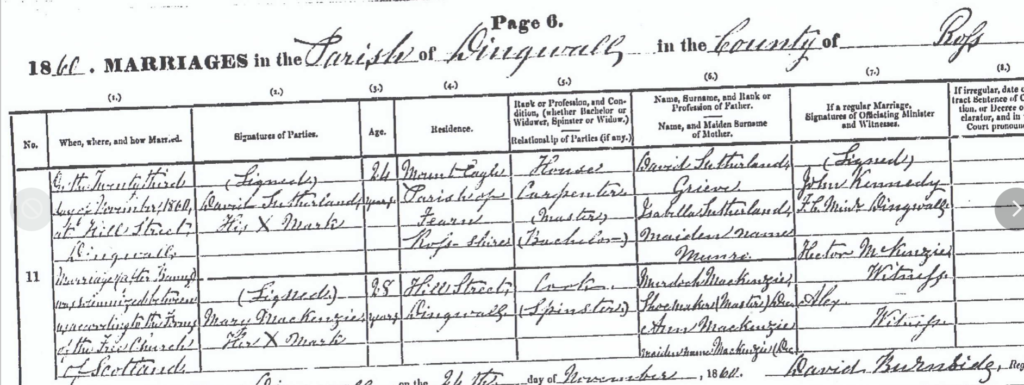 Page 6.
1860. MARRIAGES in the Parish of Dingwall in the County of Ross
(1.) (2.) (3.) (4.) (5.) (6.) (7.) (8.)
No.
When, where, and how Married.
Signatures of Parties.
Age.
Residence.
Rank or Profession, and Con-
dition, (whether Bachelor or
Widower, Spinster or Widow.)
Relationship of Parties (if any.)
Name, Surname, and Rank or
Profession of Father.
Name, and Maiden Surname
of Mother.
If a regular Marriage,
Signatures of Officiating Minister
and Witnesses.
If irregular, date o
tract Sentence of C
tion, or Decree o
clarator, and in
Court pronoun
11
On the Twenty third
day of November, 1860,
at Hill Street
Dingwall
Marriage (after Banns)
was solemnized between
us according to the Forms
of the Free Church
of Scotland
(Signed)
David Sutherland
His X Mark
24
years
Mount Eagle
Parish of
Fearn
Ross-shire
House
Carpenter
(Master)
(Bachelor)
David Sutherland
Grieve
Isabella Sutherland
Maiden name
Munro
(Signed)
John Kennedy
F.C. Minr Dingwall
Hector McKenzie
Witness
Alex
Witness
(Signed)
Mary Mackenzie
Her X Mark
28
years
Hill Street
Dingwall
Cook
(Spinster)
Murdoch Mackenzie
Shoemaker (Master) (Dec
Ann Mackenzie
maiden name Mackenzie (Dec
on the 24th day of November, 1860.
David Burnside, Reg